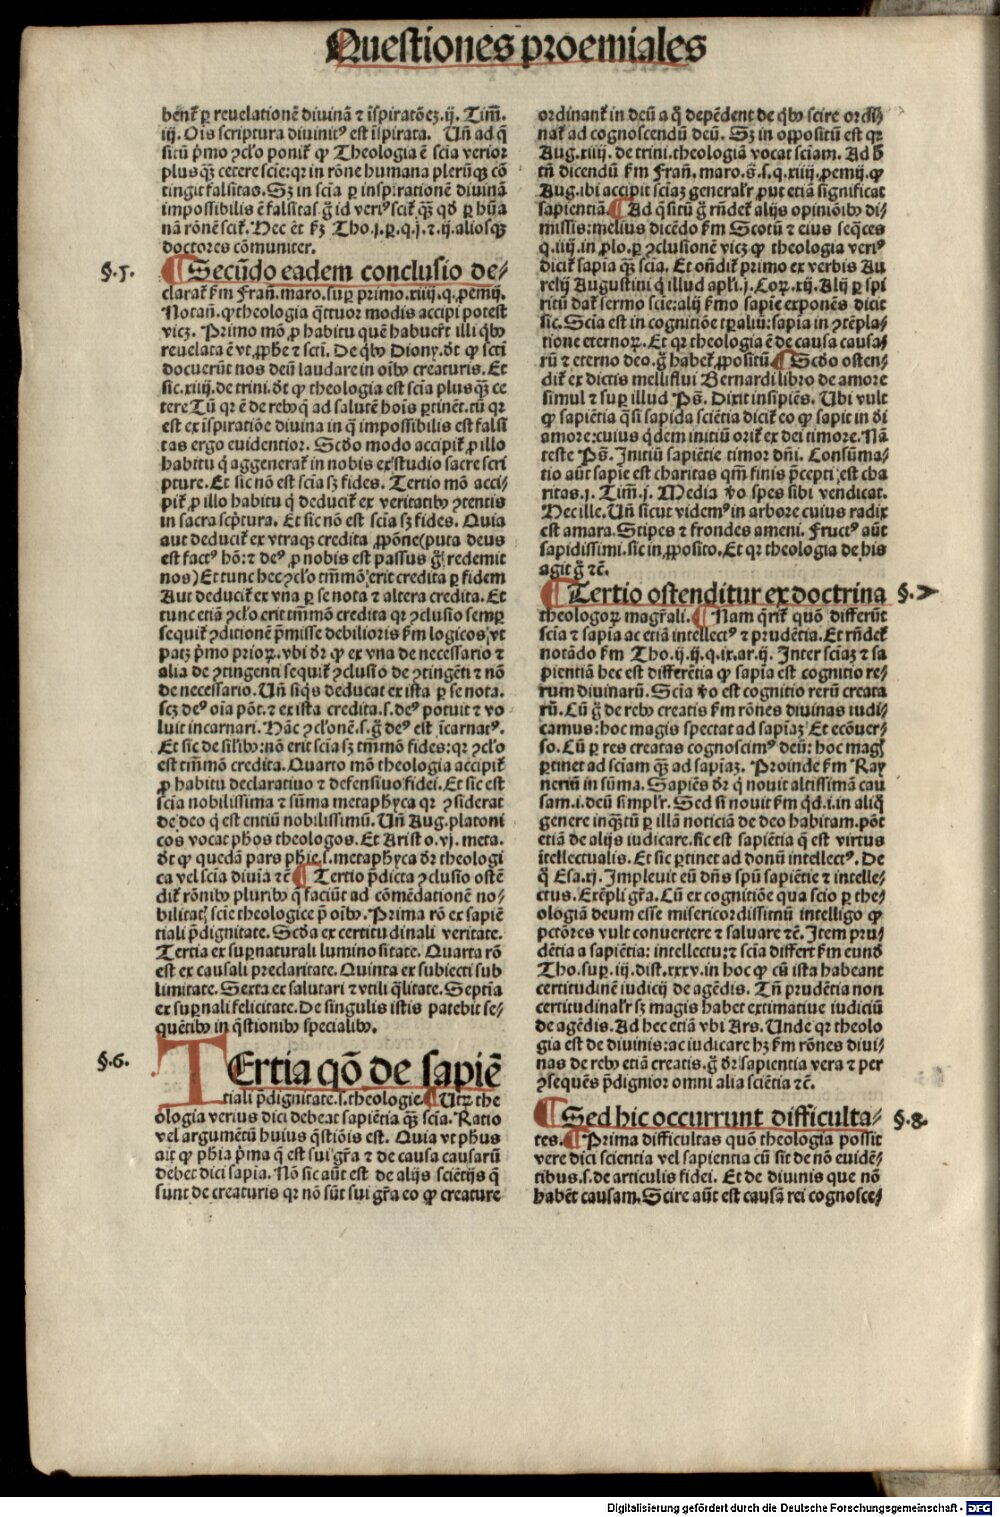 Questiones proemiales
bent᷑ ꝑ reuelationē diuinā ⁊ īspiratōeꝫ.ij. Tim̄.
iij. Oīs scriptura diuinitꝰ est īspirata. Un̄ ad q̄
sitū pͥmo ↄclo ponit᷑ ꝙ Theologia ē scīa verior
plusqꝫ cetere scīe: qꝛ in rōne humana plerūqꝫ cō
tingit falsitas. Sꝫ in scīa ꝑ inspirationē diuinā
impossibilis ē falsitas ḡ id veriꝰ scit᷑ qꝫ qď ꝑ hūa
nā rōnē scit᷑. Hec ēt ẜꝫ Tho.j.ꝑ.q.j.⁊.ij.aliosqꝫ
doctores cōmuniter.
§.5. ¶ Secūdo eadem conclusio de-
clarat᷑ ẜm Fran̄.maro.suꝑ primo.xiiij.q.ꝓemij.
Notan̄.ꝙ theologia q̄ttuor modis accipi potest
vicꝫ. Primo mō ꝓ habitu quē habuer̄t illi qͥbꝰ
reuelata ē vt ꝓphe ⁊ sctī. De qͥbꝰ Diony.dt̄ ꝙ sctī
docuerūt nos deū laudare in oībꝰ creaturis. Et
sic.xiiij.de trini.dt̄ ꝙ theologia est scīa plusqꝫ ce
tere Tū qꝛ ē de rebꝰ q̄ ad salutē hoīs ꝑtinēt.tū qꝛ
est ex īspiratiōe diuina in q̄ impossibilis est falsi
tas ergo euidentior. Scďo modo accipit᷑ ꝓ illo
habitu q̄ aggenerat᷑ in nobis ex studio sacre scri
pture. Et sic nō est scīa sꝫ fides. Tertio mō acci-
pit᷑ ꝓ illo habitu q̄ deducit᷑ ex veritatibꝰ ↄtentis
in sacra scp̄tura. Et sic nō est scīa sꝫ fides. Quia
aut deducit᷑ ex vtraqꝫ credita ꝓpōne(puta deus
est factꝰ hō: ⁊ deꝰ ꝓ nobis est passus ḡ redemit
nos) Et tunc hec ↄclo tm̄mō erit credita ꝑ fidem
Aut deducit᷑ ex vna ꝑ se nota ⁊ altera credita. Et
tunc etiā ↄclo erit tm̄mō credita qꝛ ↄclusio semꝑ
sequit᷑ ↄditionē p̄misse debilioris ẜm logicos, vt
patꝫ pͥmo prioꝝ.vbi dr̄ ꝙ ex vna de necessario ⁊
alia de ↄtingenti sequit᷑ ↄclusio de ↄtingēti ⁊ nō
de necessario. Un̄ siqͥs deducat ex ista ꝑ se nota.
scꝫ deꝰ oīa pōt.⁊ ex ista credita.s.deꝰ potuit ⁊ vo
luit incarnari. Hāc ↄclonē.s.ḡ deꝰ est īcarnatꝰ.
Et sic de sil̄ibꝰ: nō erit scīa sꝫ tm̄mō fides: qꝛ ↄclo
est tm̄mō credita. Quarto mō theologia accipit᷑
ꝓ habitu declaratiuo ⁊ defensiuo fidei. Et sic est
scīa nobilissima ⁊ sūma metaphyca qꝛ ↄsiderat
de deo q̄ est entiū nobilissimū. Un̄ Aug.platoni
cos vocat phōs theologos. Et Aristo.vj. meta.
dt̄ ꝙ quedā pars phīe.s.metaphyca dꝛ theologi
ca vel scīa diuīa ⁊ē ¶ Tertio p̄dicta ↄclusio ostē
dit᷑ rōnibꝰ pluribꝰ q̄ faciūt ad cōmēdationē no-
bilitatꝭ scīe theologice p̄ oībꝰ. Prima rō ex sapiē
tiali p̄dignitate. Scďa ex certitudinali veritate.
Tertia ex suꝑnaturali luminositate. Quarta rō
est ex causali preclaritate. Quinta ex subiecti sub
limitate. Sexta ex salutari ⁊ vtili q̄litate. Septīa
ex suꝑnali felicitate. De singulis istis patebit se-
quētibꝰ in q̄stionibꝰ specialibꝰ.
§.6. TErtia qō de sapiē
tiali p̄dignitate.s.theologie. ¶ Utꝝ the
ologia verius dici debeat sapiētia qꝫ scīa. Ratio
vel argumētū huius q̄stiōis est. Quia vt phūs
ait ꝙ phīa pͥma q̄ est sui gr̄a ⁊ de causa causarū
debet dici sapīa. Nō sic aūt est de alijs sciētijs q̄
sunt de creaturis qꝛ nō sūt sui gr̄a eo ꝙ creature
ordinant᷑ in deū a q̄ depēdent de qͥbꝰ scire ordi
nat᷑ ad cognoscendū deū. Sꝫ in oppositū est qꝛ
Aug.xiiij. de trini.theologiā vocat sciam. Ad ḣ
tn̄ dicendū ẜm Fran̄. maro.s̄.s.q.xiiij.ꝓemij.ꝙ
Aug.ibi accipit sciaꝫ general'r ꝓut etiā significat
sapientiā. ¶ Ad q̄situ ḡ rn̄det᷑ alijs opiniōibꝰ di-
missis: melius dicēdo ẜm Scotū ⁊ eius seq̄ces
q.iiij.in ꝓlo.ꝑ ↄclusionē vicꝫ ꝙ theologia veriꝰ
dicit᷑ sapīa qꝫ scīa. Et on̄dit᷑ primo ex verbis Au
relij Augustini q̄ illud apl̄i.j.Coꝝ.xij. Alij ꝑ spi
ritū dat᷑ sermo scīe: alij ẜmo sapīe exponēs dicit
sic. Scīa est in cognitiōe tꝑaliū: sapīa in ↄtēpla-
tione eternoꝝ. Et qꝛ theologia ē de causa causa-
rū ⁊ eterno deo.ḡ habet᷑ ꝓpositū. ¶ Scďo osten-
dit᷑ ex dictis melliflui Bernardi libro de amore
simul ⁊ suꝑ illud Ps̄. Dixit insipiēs. Ubi vult
ꝙ sapiētia q̄si sapida sciētia dicit᷑ eo ꝙ sapit in di
amore: cuius q̄dem initiū orit᷑ ex dei timore. Nā
teste Ps̄. Initiū sapiētie timor dn̄i. Consūma-
tio aūt sapīe est charitas qm̄ finis p̄cepti est cha
ritas.j. Tim̄.j. Media v̄o spes sibi vendicat.
Hec ille. Un̄ sicut videmꝰ in arbore cuius radix
est amara. Stipes ⁊ frondes ameni. Fructꝰ aūt
sapidissimi.sic in ꝓposito. Et qꝛ theologia de his
agit ḡ ⁊ē.
¶ Tertio ostenditur ex doctrina §.7
theologoꝝ magr̄ali. ¶ Nam q̄rit᷑ quō differūt
scīa ⁊ sapīa ac etiā intellectꝰ ⁊ prudētia. Et rn̄det᷑
notādo ẜm Tho.ij.ij.q.ix.ar.ij. Inter sciaꝫ ⁊ sa
pientiā hec est differētia ꝙ sapīa est cognitio re-
rum diuinarū. Scīa v̄o est cognitio rerū creata
rū. Cū ḡ de rebꝰ creatis ẜm rōnes diuinas iudi-
camus: hoc magis spectat ad sapīaꝫ Et ecōuer-
so. Cū ꝑ res creatas cognoscimꝰ deū: hoc magꝭ
ꝑtinet ad sciam qꝫ ad sapīaꝫ. Proinde ẜm Ray
neriū in sūma. Sapiēs dr̄ q̄ nouit altissimā cau
sam.i.deū simpl'r. Sed si nouit ẜm qͥd.i.in aliq̄
genere inqꝫtū ꝑ illā noticiā de deo habitam.pōt
etiā de alijs iudicare.sic est sapiētia q̄ est virtus
ītellectualis. Et sic ꝑtinet ad donū intellectꝰ. De
q̄ Esa.xj. Impleuit eū dn̄s spū sapiētie ⁊ intelle-
ctus. Exēpli gr̄a. Cū ex cognitiōe qua scio ꝑ the-
ologiam deum esse misericordissimū intelligo ꝙ
pctōres vult conuertere ⁊ saluare ⁊ē. Jtem pru-
dētia a sapiētia: intellectu: ⁊ scīa differt ẜm eund̄
Tho.suꝑ.iij.dist.xxxv.in hoc ꝙ cū ista habeant
certitudinē iudicij de agēdis. Tn̄ prudētia non
certitudinal'r sꝫ magis habet extimatiue iudiciū
de agēdis. Ad hec etiā vbi Ars. Unde qꝛ theolo
gia est de diuinis: ac iudicare hꝫ ẜm rōnes diui-
nas de rebꝰ etiā creatis.ḡ dr̄ sapientia vera ⁊ per
ↄsequēs p̄dignior omni alia sciētia ⁊ē.
¶ Sed hic occurrunt difficulta- §.8.
tes. ¶ Prima difficultas quō theologia possit
vere dici scientia vel sapientia cū sit de nō euidē-
tibus.s.de articulis fidei. Et de diuinis que nō
habēt causam. Scire aūt est causā rei cognosce-
Digitalisierung gefördert durch die Deutsche Forschungsgemeinschaft - DFG